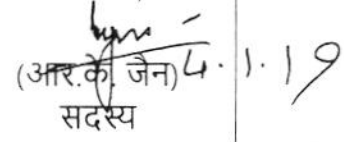 (आर.के. जैन) 4.1.19
सदस्य